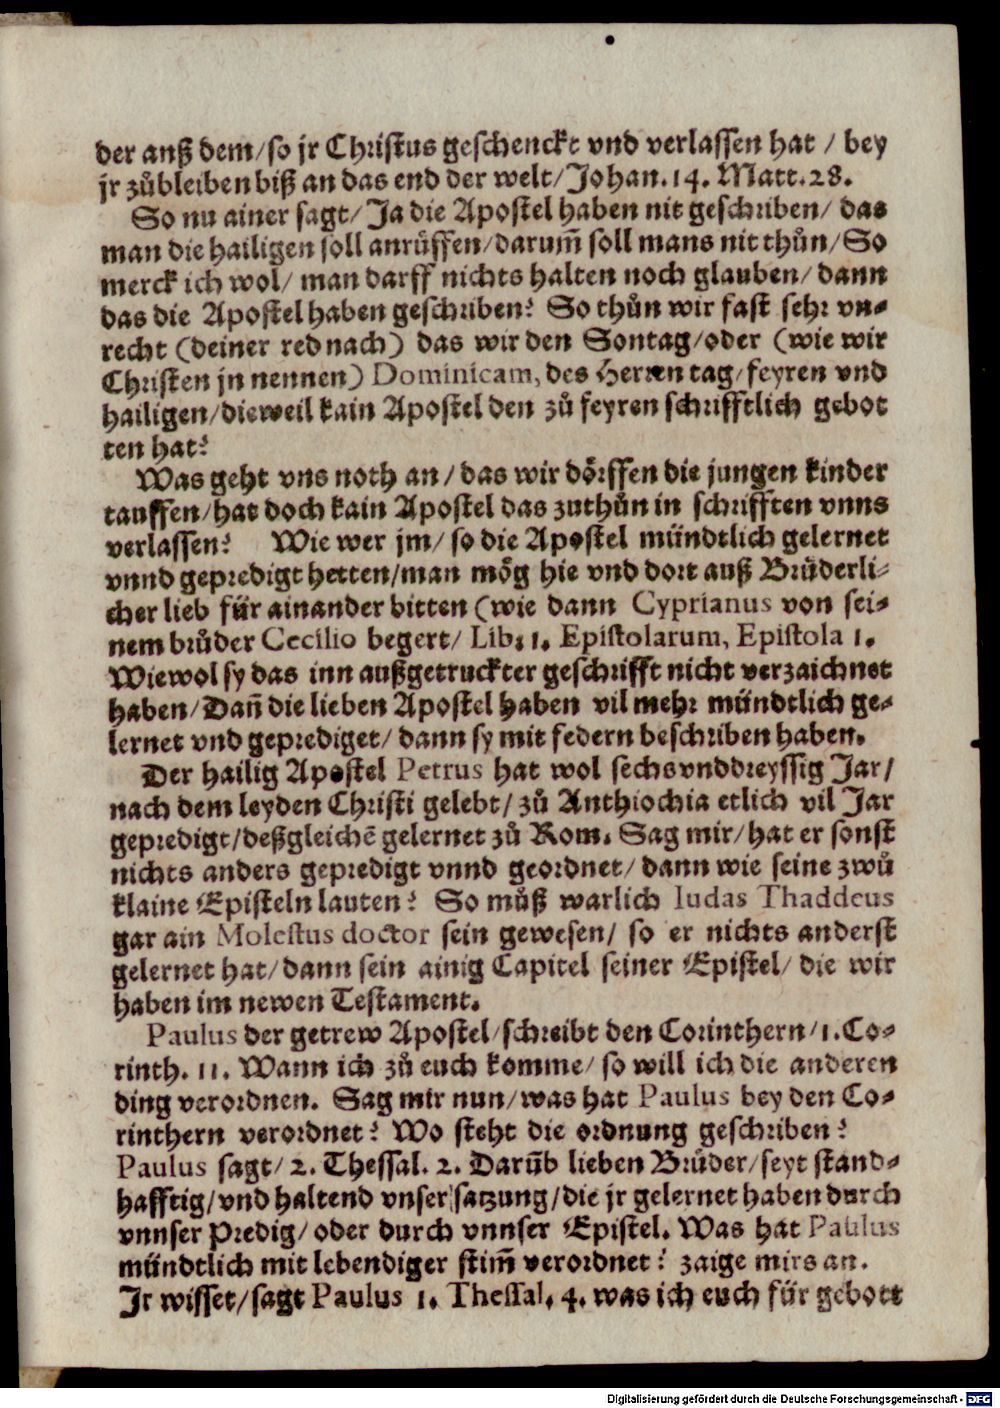 der auß dem/so jr Christus geschenckt vnd verlassen hat / bey
jr zůbleiben biß an das end der welt/Johan.14. Matt.28.
So nu ainer sagt/ Ja die Apostel haben nit geschriben/ das
man die hailigen soll anrůffen/darum̃ soll mans nit thůn/So
merck ich wol/ man darff nichts halten noch glauben/ dann
das die Apostel haben geschriben? So thůn wir fast sehr vn-
recht (deiner red nach) das wir den Sontag/oder (wie wir
Christen jn nennen) Dominicam, des Herren tag/feyren vnd
hailigen/dieweil kain Apostel den zů feyren schrifftlich gebot
ten hat?
Was geht vns noth an/ das wir dörffen die jungen kinder
tauffen/hat doch kain Apostel das zuthůn in schrifften vnns
verlassen? Wie wer jm/ so die Apostel mündtlich gelernet
vnnd gepredigt hetten/man mög hie vnd dort auß Brüderli-
cher lieb für ainander bitten (wie dann Cyprianus von sei-
nem brůder Cecilio begert/ Lib: 1. Epistolarum, Epistola 1.
Wiewol sy das inn außgetruckter geschrifft nicht verzaichnet
haben/Dañ die lieben Apostel haben vil mehr mündtlich ge-
lernet vnd geprediget/ dann sy mit federn beschriben haben.
Der hailig Apostel Petrus hat wol sechsvnddreyssig Jar/
nach dem leyden Christi gelebt/ zů Anthiochia etlich vil Jar
gepredigt/deßgleichē gelernet zů Rom. Sag mir/ hat er sonst
nichts anders gepredigt vnnd geordnet/ dann wie seine zwů
klaine Episteln lauten? So můß warlich Iudas Thaddeus
gar ain Molestus doctor sein gewesen/ so er nichts anderst
gelernet hat/dann sein ainig Capitel seiner Epistel/ die wir
haben im newen Testament.
Paulus der getrew Apostel/schreibt den Corinthern/1.Co-
rinth. 11. Wann ich zů euch komme/ so will ich die anderen
ding verordnen. Sag mir nun/was hat Paulus bey den Co-
rinthern verordnet? Wo steht die ordnung geschriben?
Paulus sagt/ 2. Thessal. 2. Darum̄b lieben Brůder/seyt stand-
hafftig/vnd haltend vnser satzung/die jr gelernet haben durch
vnnser Predig/ oder durch vnnser Epistel. Was hat Paulus
mündtlich mit lebendiger stim̃ verordnet? zaige mirs an.
Jr wisset/sagt Paulus 1. Thessal. 4. was ich euch für gebott
Digitalisierung gefördert durch die Deutsche Forschungsgemeinschaft - DFG